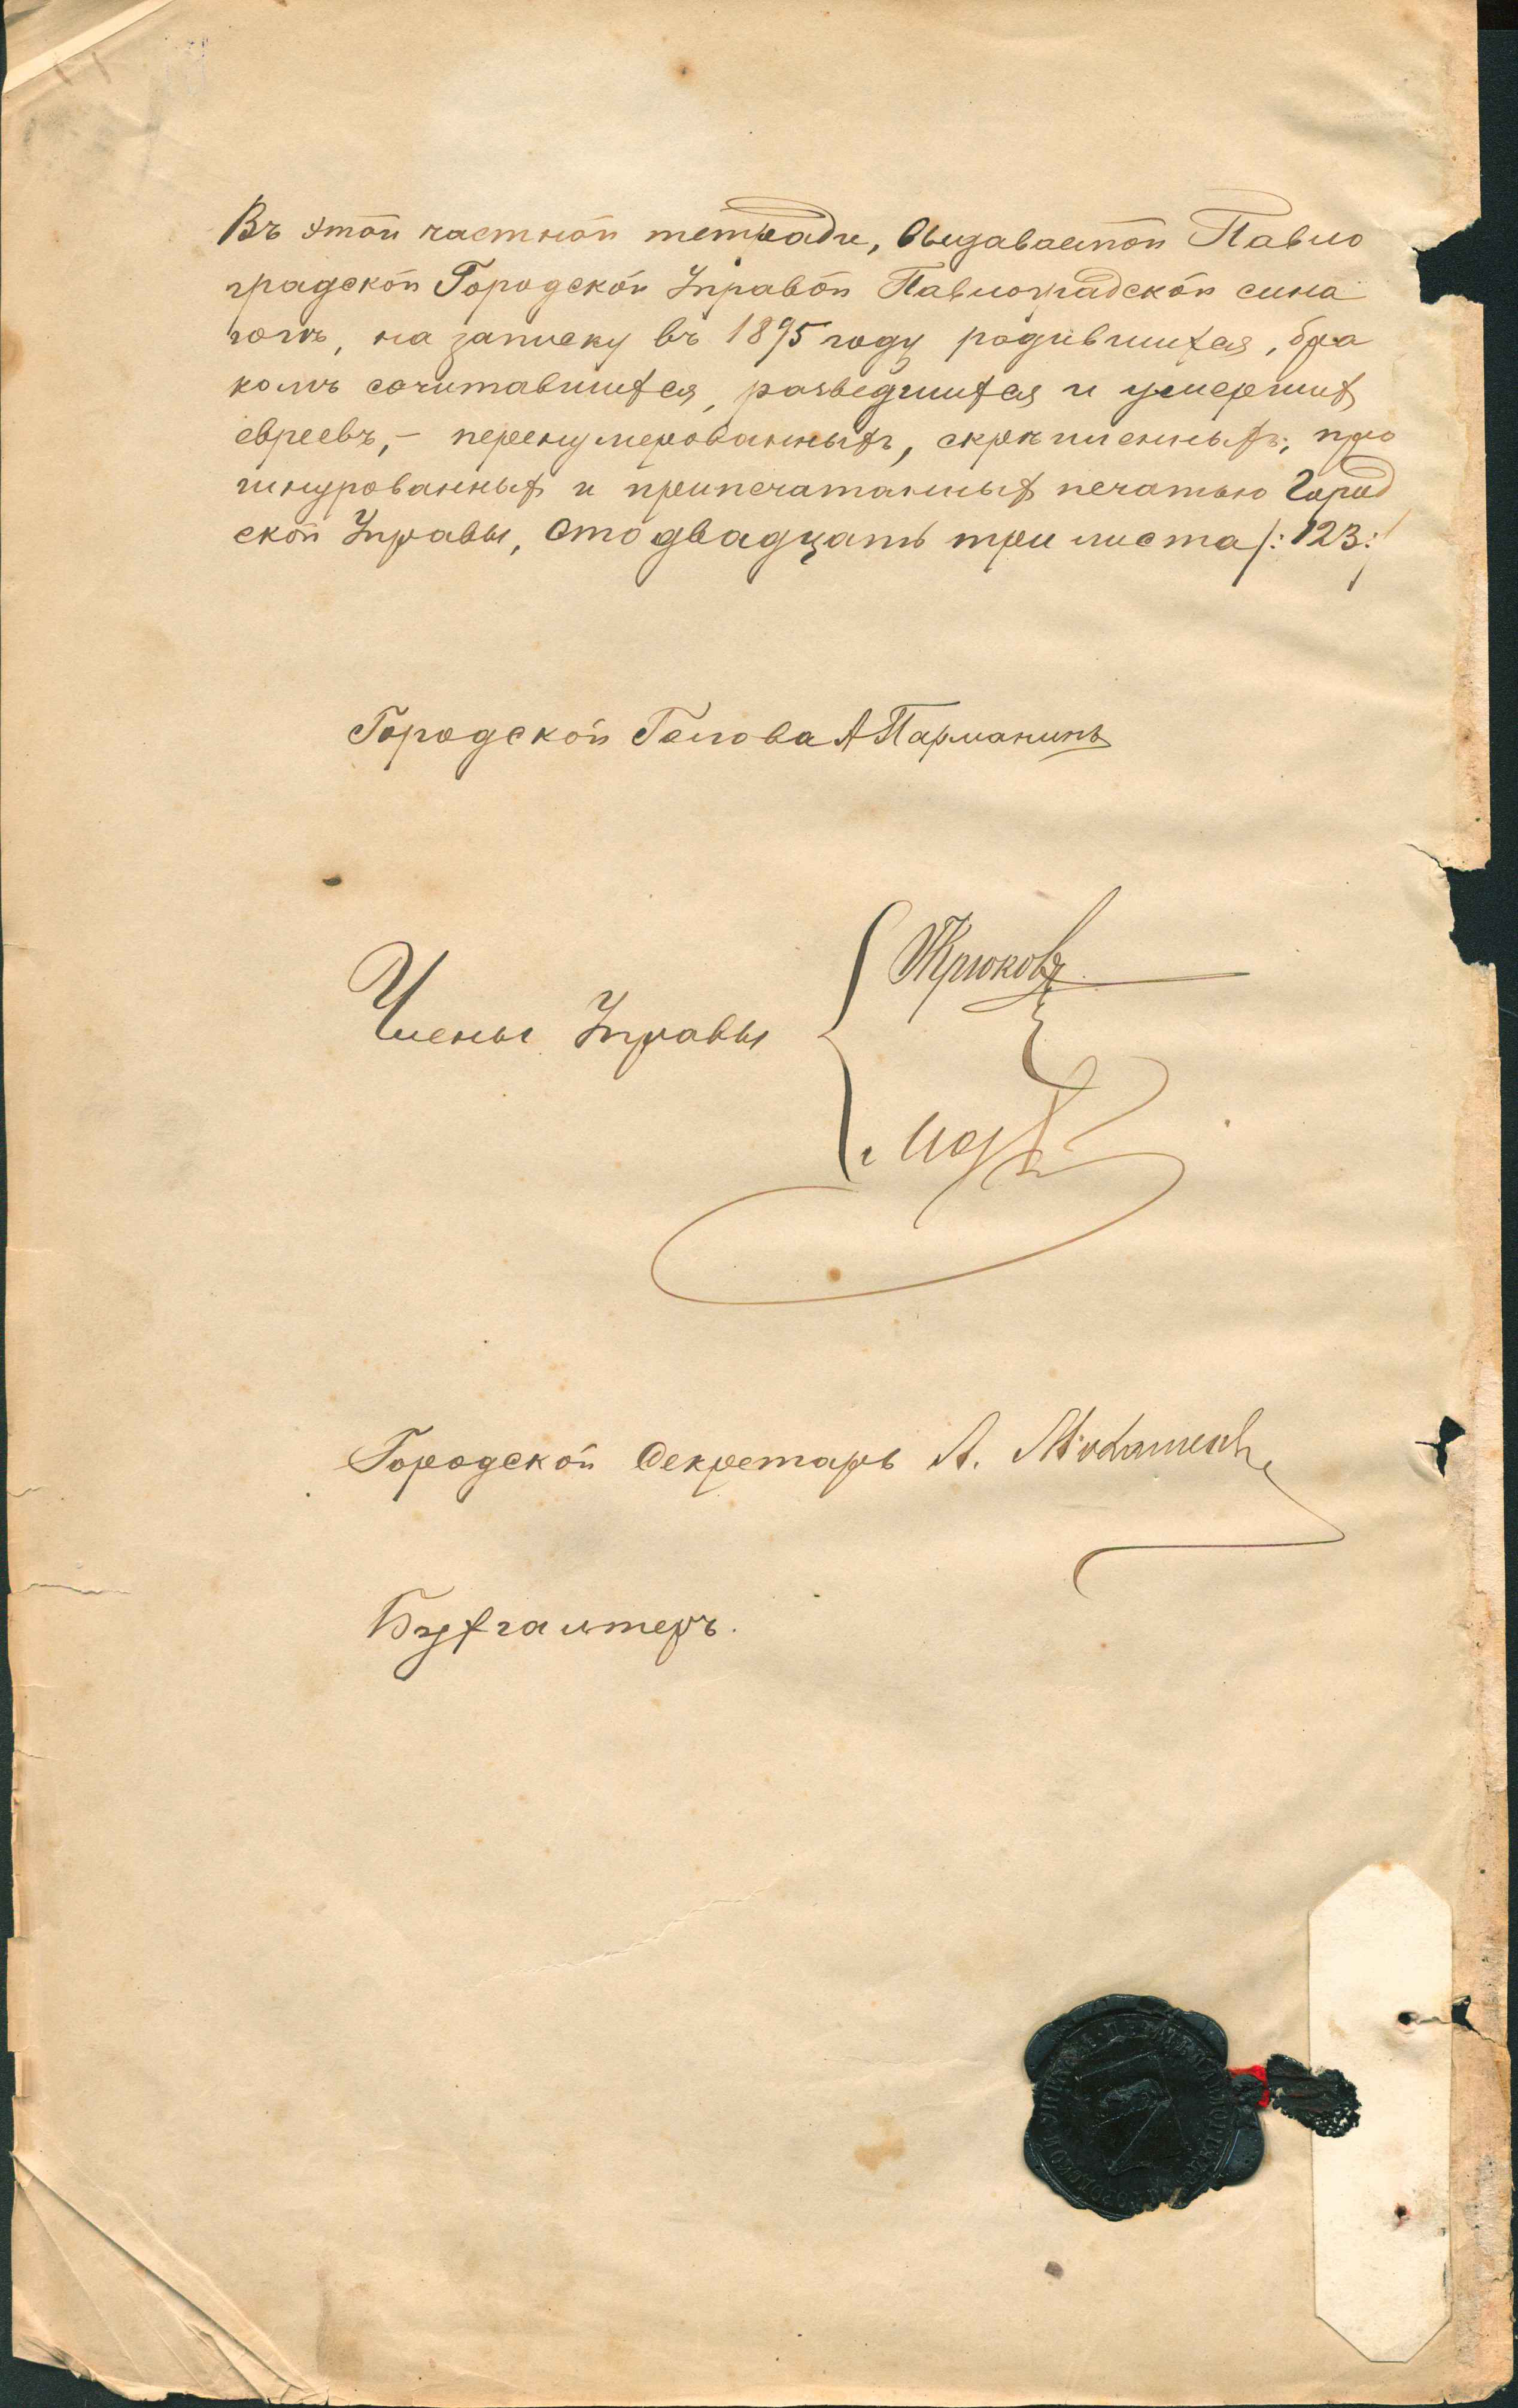 Въ этой частной тетради, выдаваемой Павло
градской Городской Управой Павлоградской сина
гогѣ, на записку въ 1895 году родившихся, бра
комъ сочитавшихся, разведшихся и умерших
евреевъ,- перенумерованныхъ, скрѣпленныхъ, про
шнурованных и припечатанных печатью Город
ской Управы, сто двадцать три листа /:123:/
Городской Голова А Парманинъ
Члены Управы
Крюковъ
Городской Секретарь А.
Бухгалтеръ.